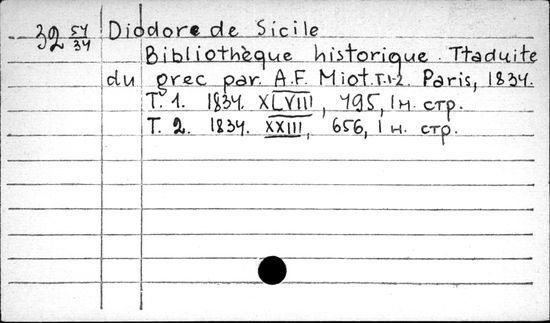 39 54/34 Diodore de Sicile
Bibliothèque historique. Ttaduite
du grec par. A.F. Miot. T.1-2. Paris, 1834.
T. 1. 1834. XLVIII, 495, 1 н. стр.
T. 2. 1834. XXIII, 656, 1 н. стр.